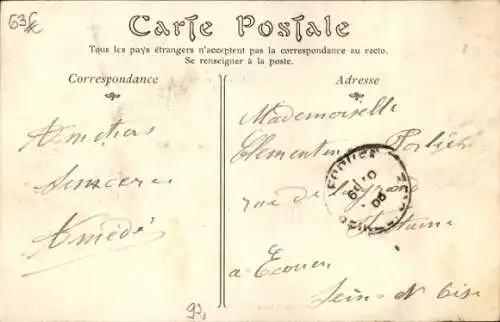 63
Carte Postale
Tous les pays étrangers n'acceptent pas la correspondance au recto.
Se renseigner à la poste.
Correspondance
Adresse
Amitiers
Sincere
Amédé
Mademoiselle
Clementine Portier
rue de la
fontaine
a Ecouen
Seine et Oise
92,